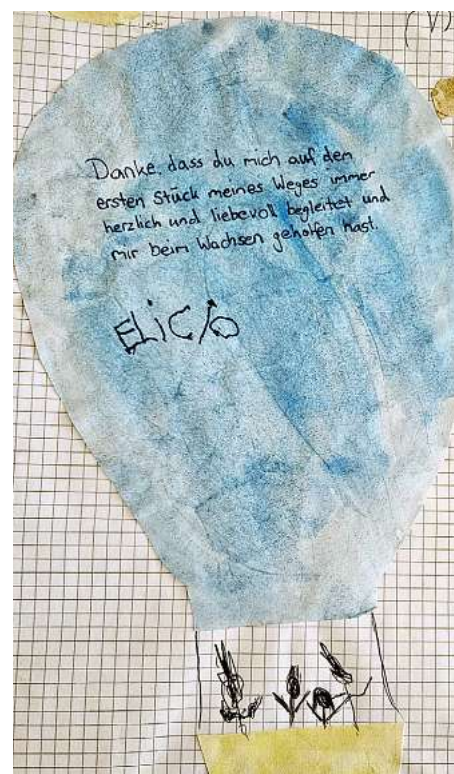 Danke, dass du mich auf den
ersten Stück meines Weges immer
herzlich und liebevoll begleitet und
mir beim Wachsen geholfen hast.
ELiC/O